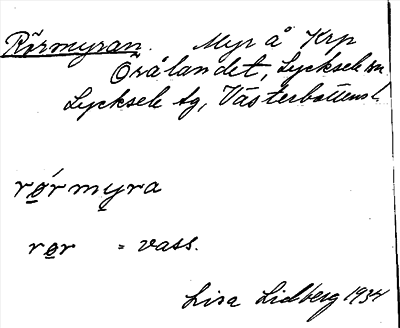 Rörmyran. Myr å Krp
Örålandet, Lycksele sn
Lycksele tg, Västerbottens l.
rørmyra
rør = vass.
Lisa Lidberg 1934